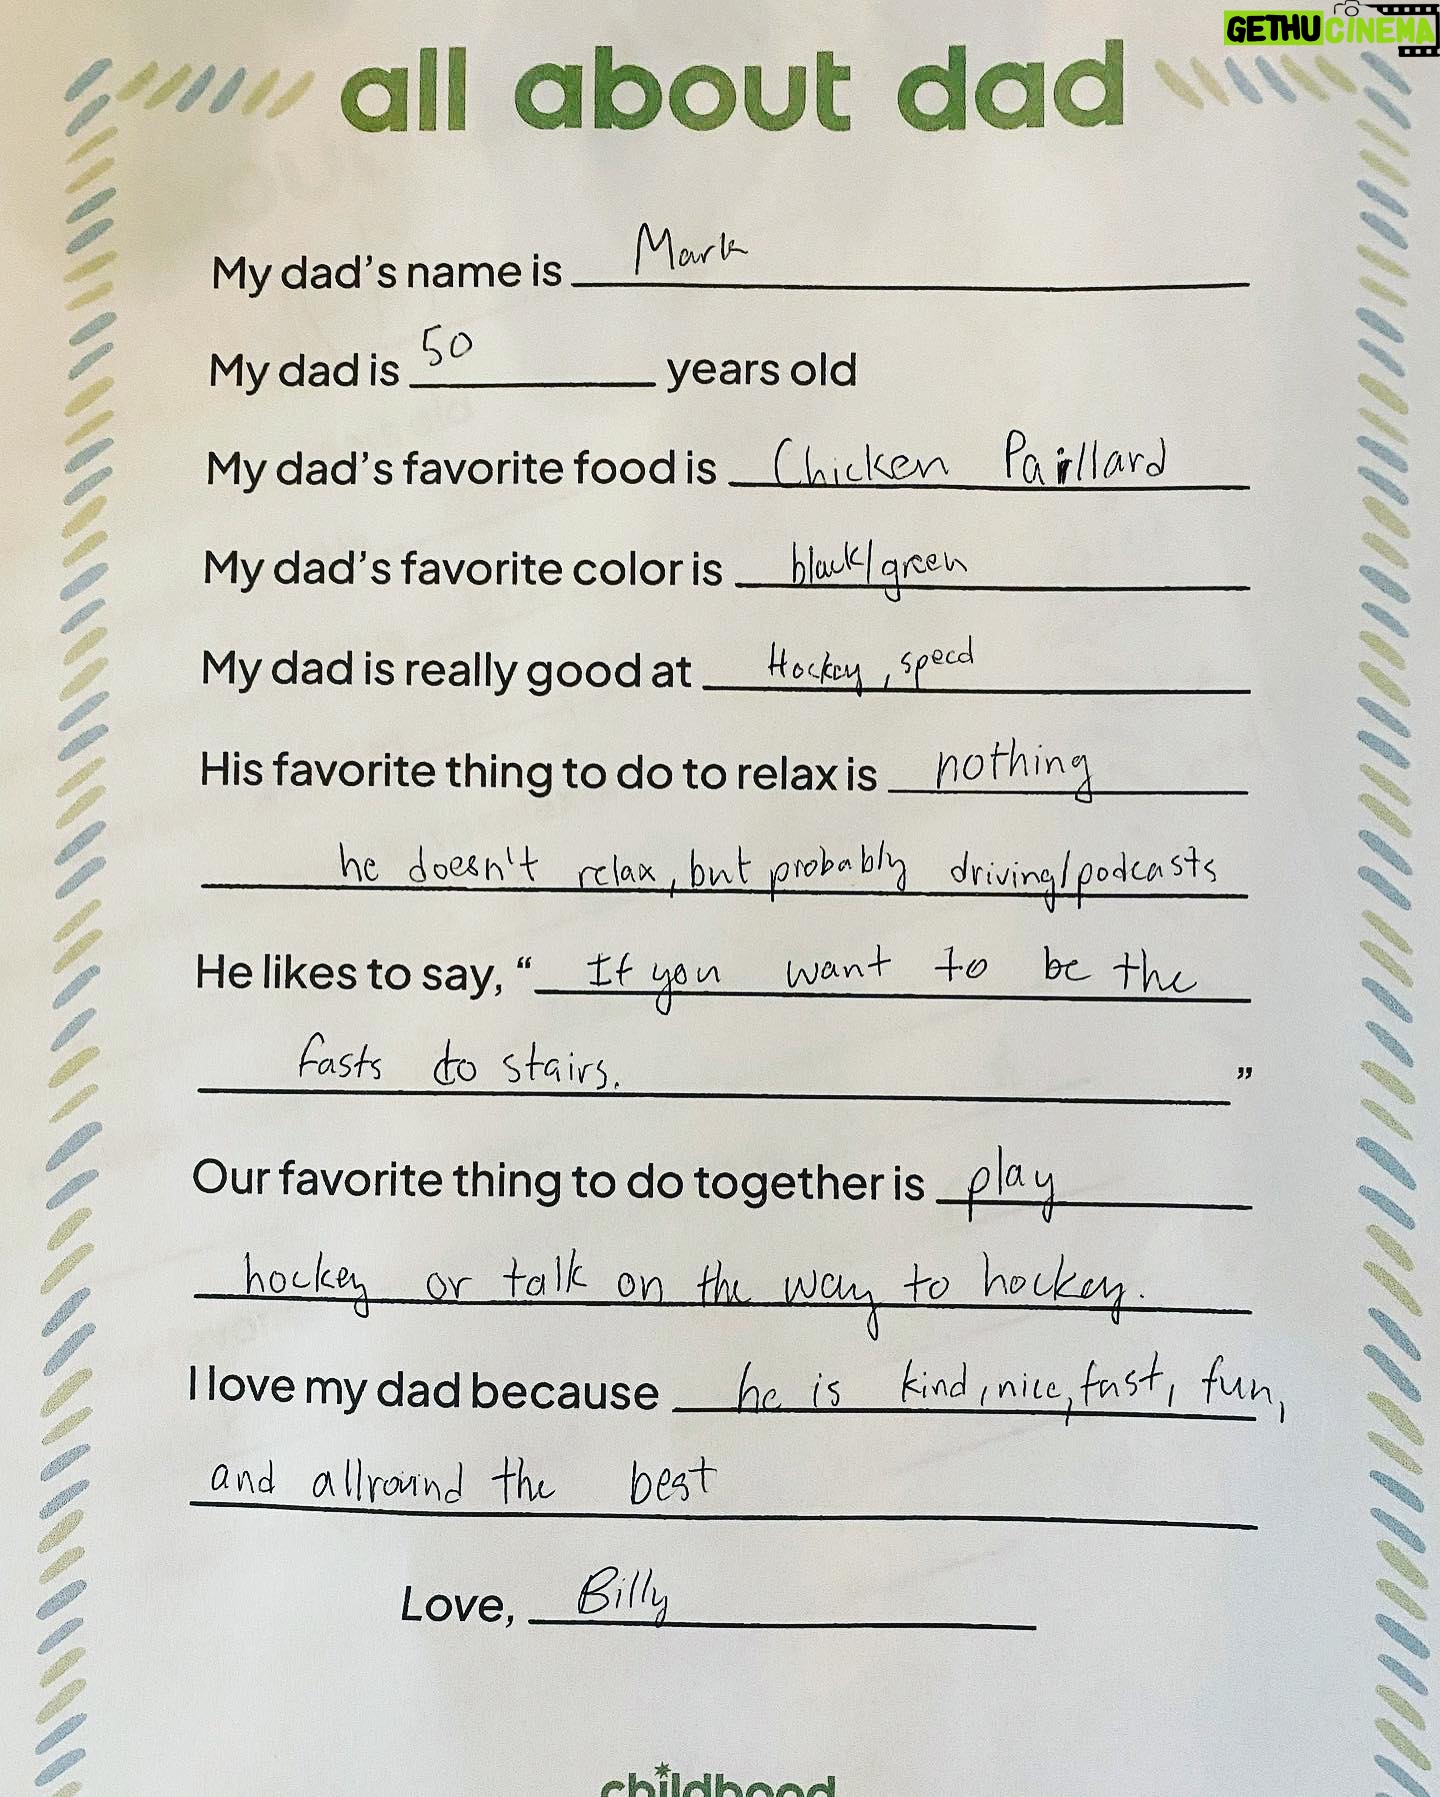 GETHUCINEMA
all about dad
My dad's name is Mark
My dad is 50 years old
My dad's favorite food is Chicken Paillard
My dad's favorite color is black/green
My dad is really good at Hockey, speed
His favorite thing to do to relax is nothing
he doesn't relax, but probably driving/podcasts
He likes to say, “ If you want to be the
fasts do stairs. ”
Our favorite thing to do together is play
hockey or talk on the way to hockey.
I love my dad because he is kind, nice, fast, fun,
and allround the best
Love, Billy
childhood